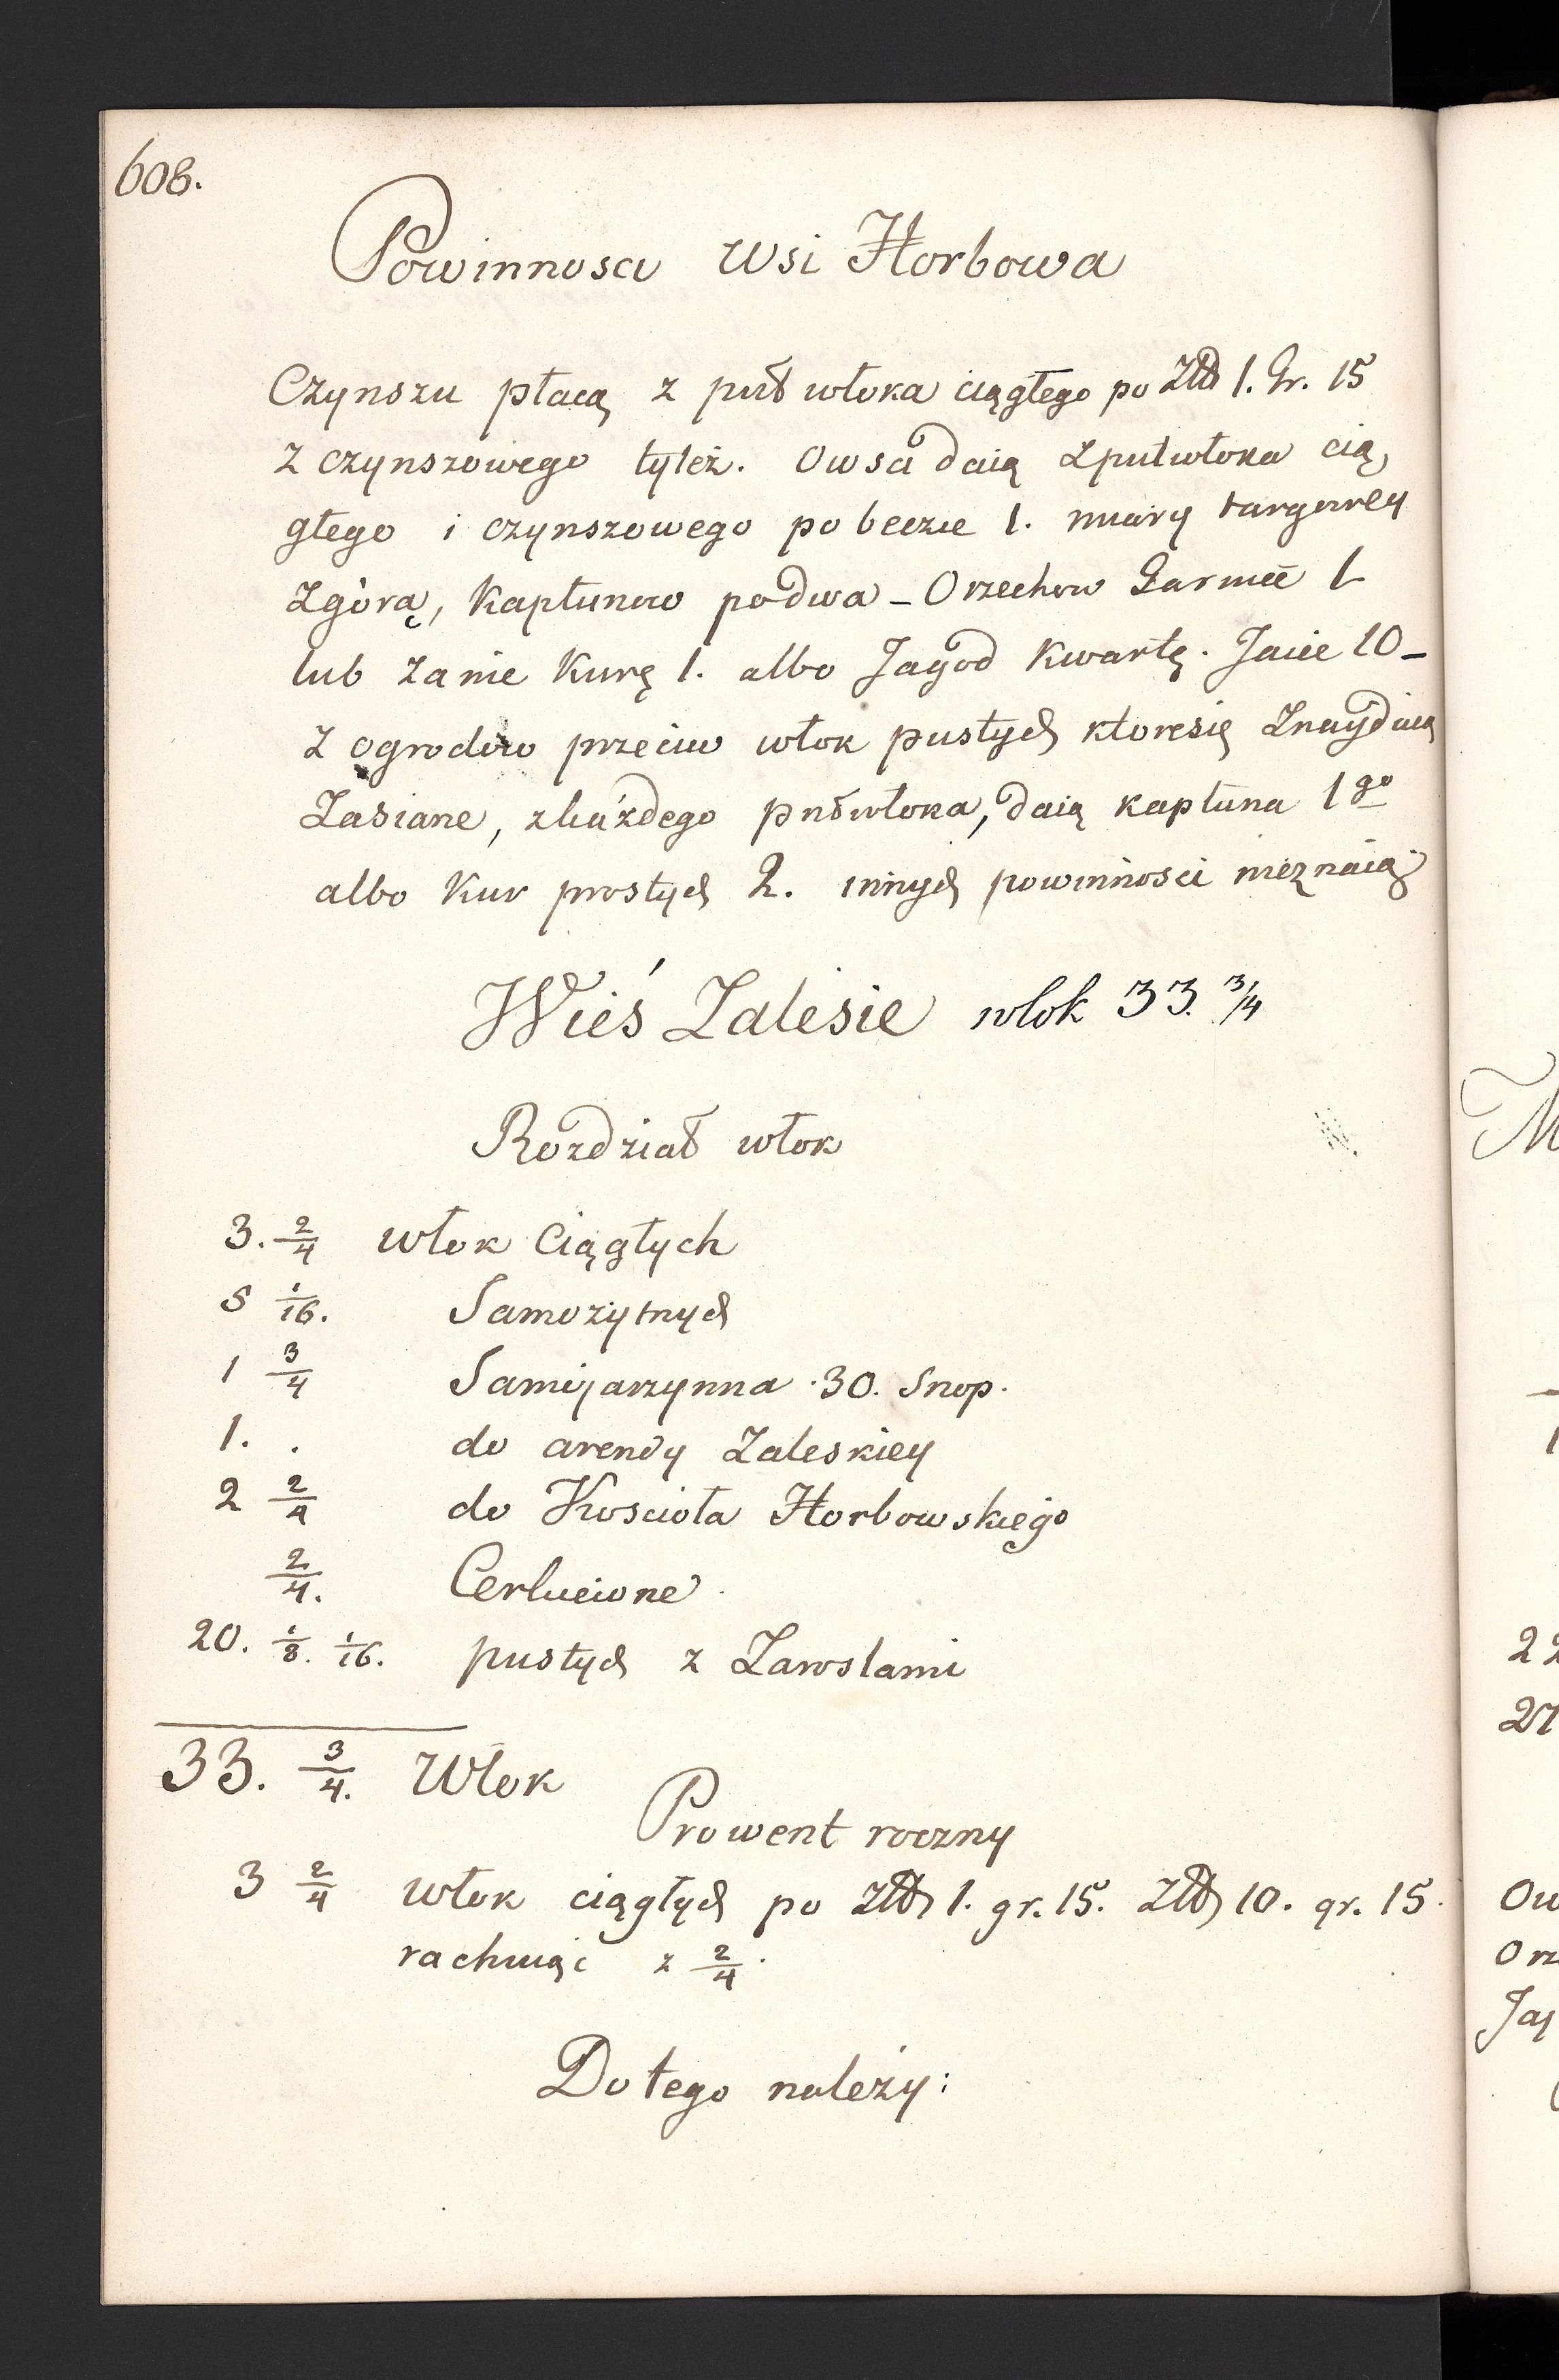 608.
Powinnosci Wsi Horbowa
Czynszu płacą z puł włoka ciągłego po Złł 1. Gr. 15
z czynszowego tyleż. Owsa daią z pułwłoka cią,
głego i czynszowego po beczce 1. miary targowey
z górą, Kapłunow po dwa – Orzechow Garniec 1
lub za nie Kurę 1. albo Jagod Kwartę. Jaiec 10 –
z ogrodów przeciw włok pustych ktore się znayduią
Zasiane, z każdego pułwłoka, daią kapłuna 1go
albo Kur prostych 2. innych powinnosci nieznaią
Wieś Zalesie włok 33. 3/4
Rozdział włok
3. 2/4 włok Ciągłych
5 1/16. Samożytnych
1 3/4 Samijarzynna 30. Snop.
1. . do arendy Zaleskiey
2 2/4 do Koscioła Horbowskiego
2/4.
20. 1/8. 1/16. pustych z Zawslami
33. 3/4. Włok
Prowent roczny
3 2/4 włok ciągłych po Złł 1. gr. 15. Złł 10. gr. 15.
rachuiąc z 2/4.
Do tego należy:
M
22
27
Ow
Orz
Jag